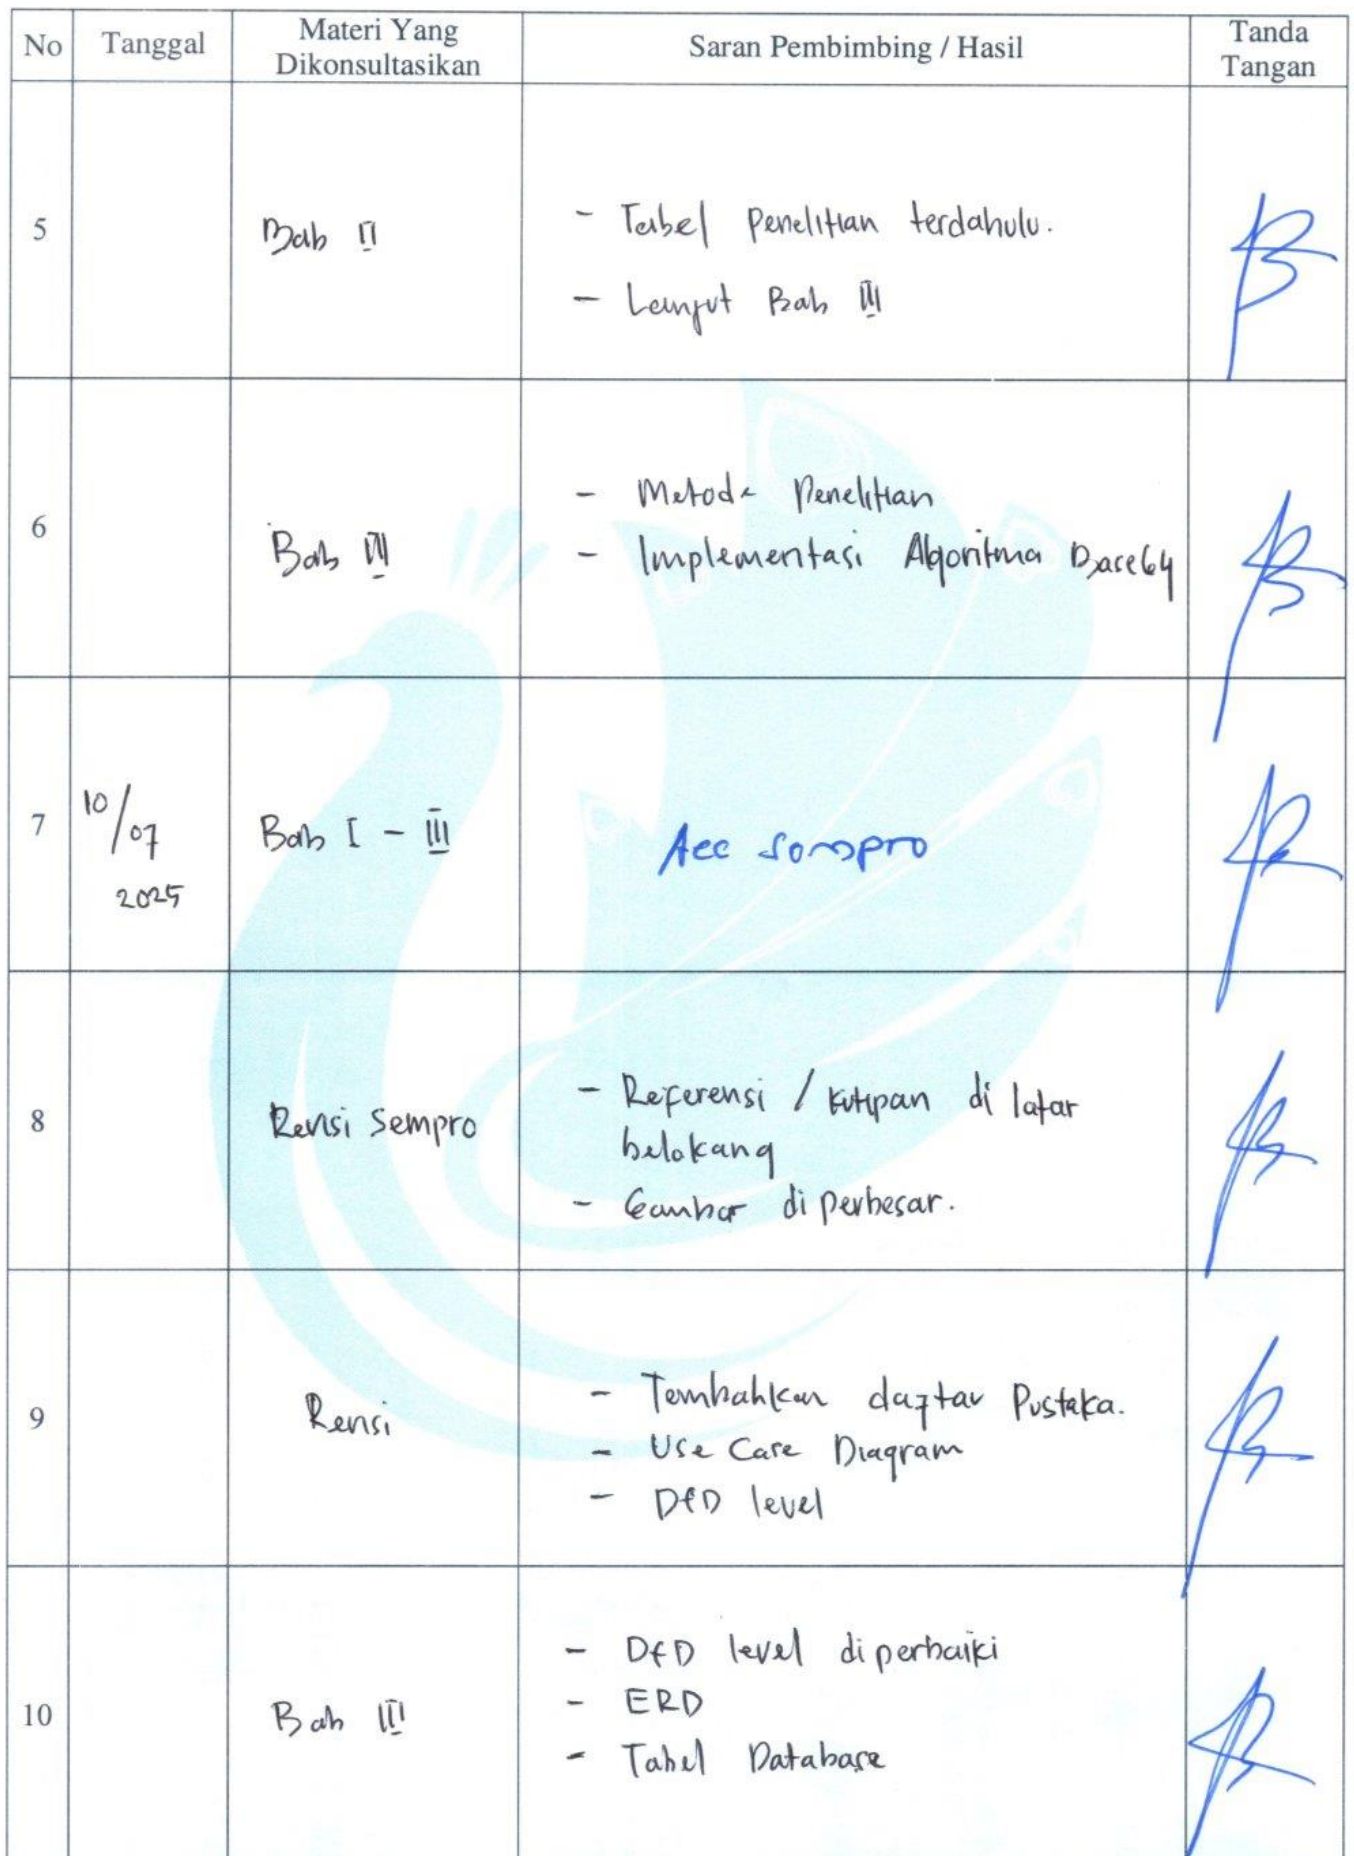 No Tanggal Materi Yang Dikonsultasikan Saran Pembimbing / Hasil Tanda Tangan
5 Bab II - Tabel Penelitian terdahulu.
- Lanjut Bab III
6 Bab III - Metode Penelitian
- Implementasi Algoritma Base64
7 10/07 2025 Bab I - III Acc Sempro
8 Revisi Sempro - Referensi / kutipan di latar
belakang
- Gambar di perbesar.
9 Revisi - Tambahkan daftar Pustaka.
- Use Case Diagram
- DfD level
10 Bab III - DfD level di perbaiki
- ERD
- Tabel Database